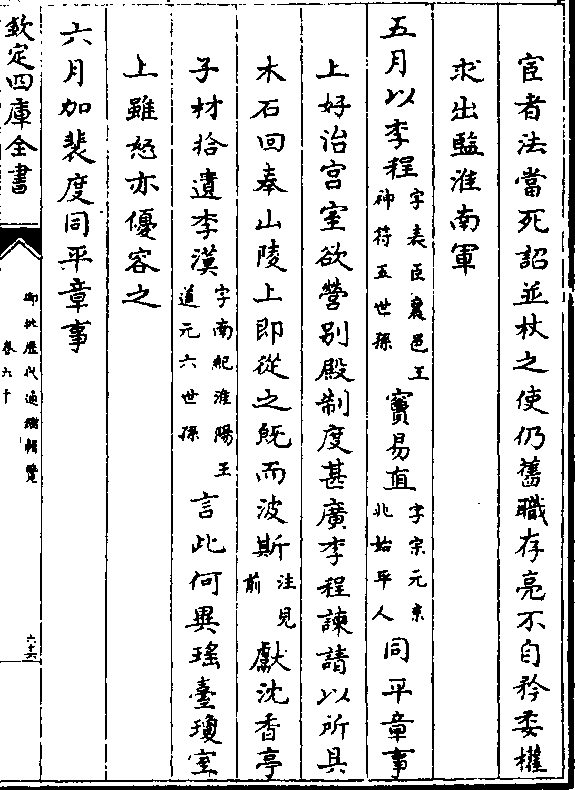 宦者法當死詔並杖之使仍舊職存亮不自矜委權
求出監淮南軍
五月以李程字表臣襄邑王神符五世孫竇易直字宗元京兆始平人同平章事
上好治宫室欲營别殿制度甚廣李程諫請以所具
木石回奉山陵上即從之既而波斯注見前獻沈香亭
子材拾遺李漢字南紀淮陽王道元六世孫言此何異瑤臺瓊室
上雖怒亦優容之
六月加裴度同平章事
欽定四庫全書
御批歷代通鑑輯覽
卷六十